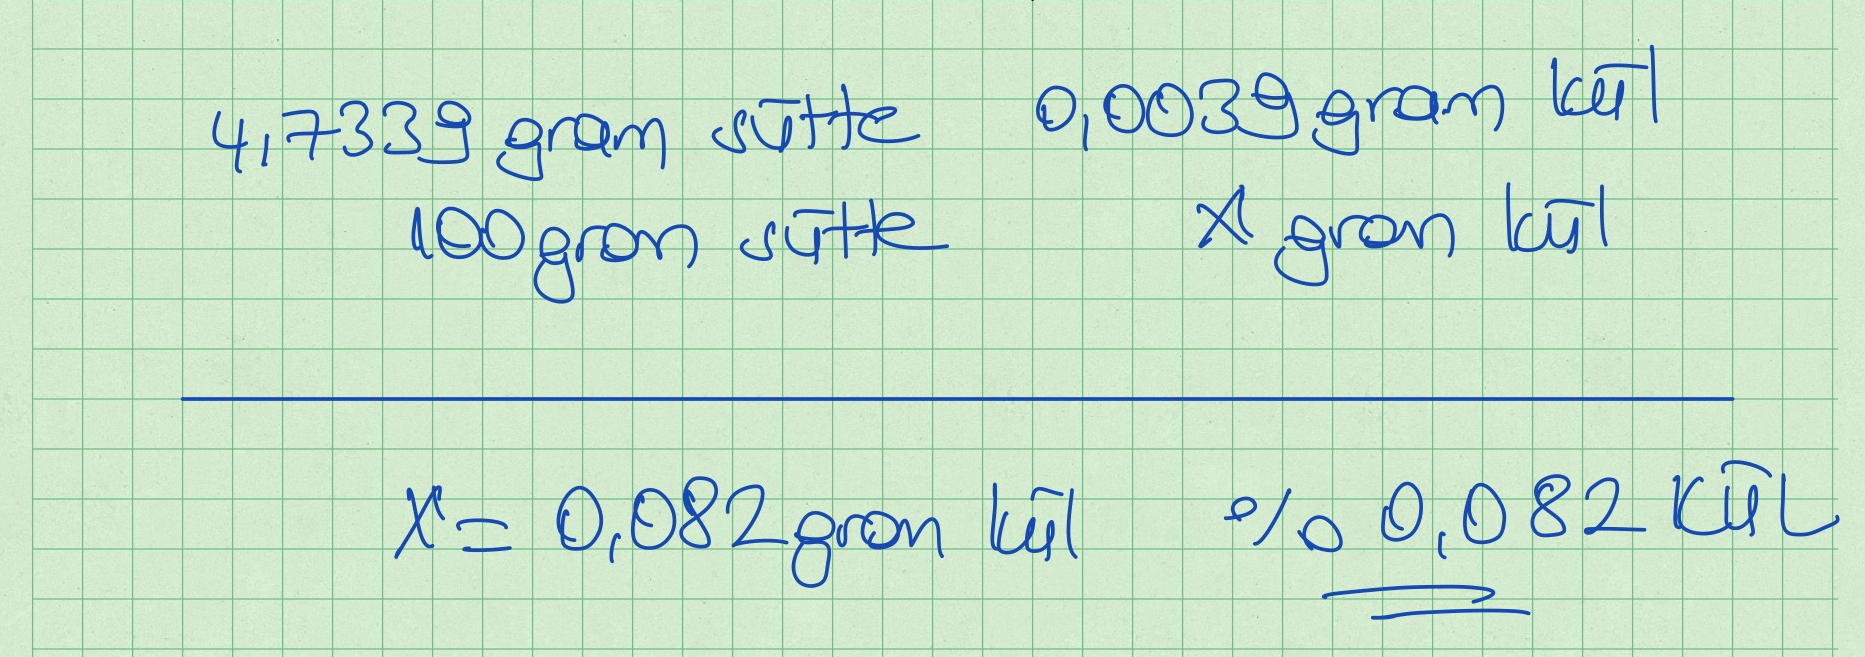 4,7339 gram sütte 0,0039 gram kül
100 gram sütte X gram kül
X = 0,082 gram kül % 0,082 KÜL